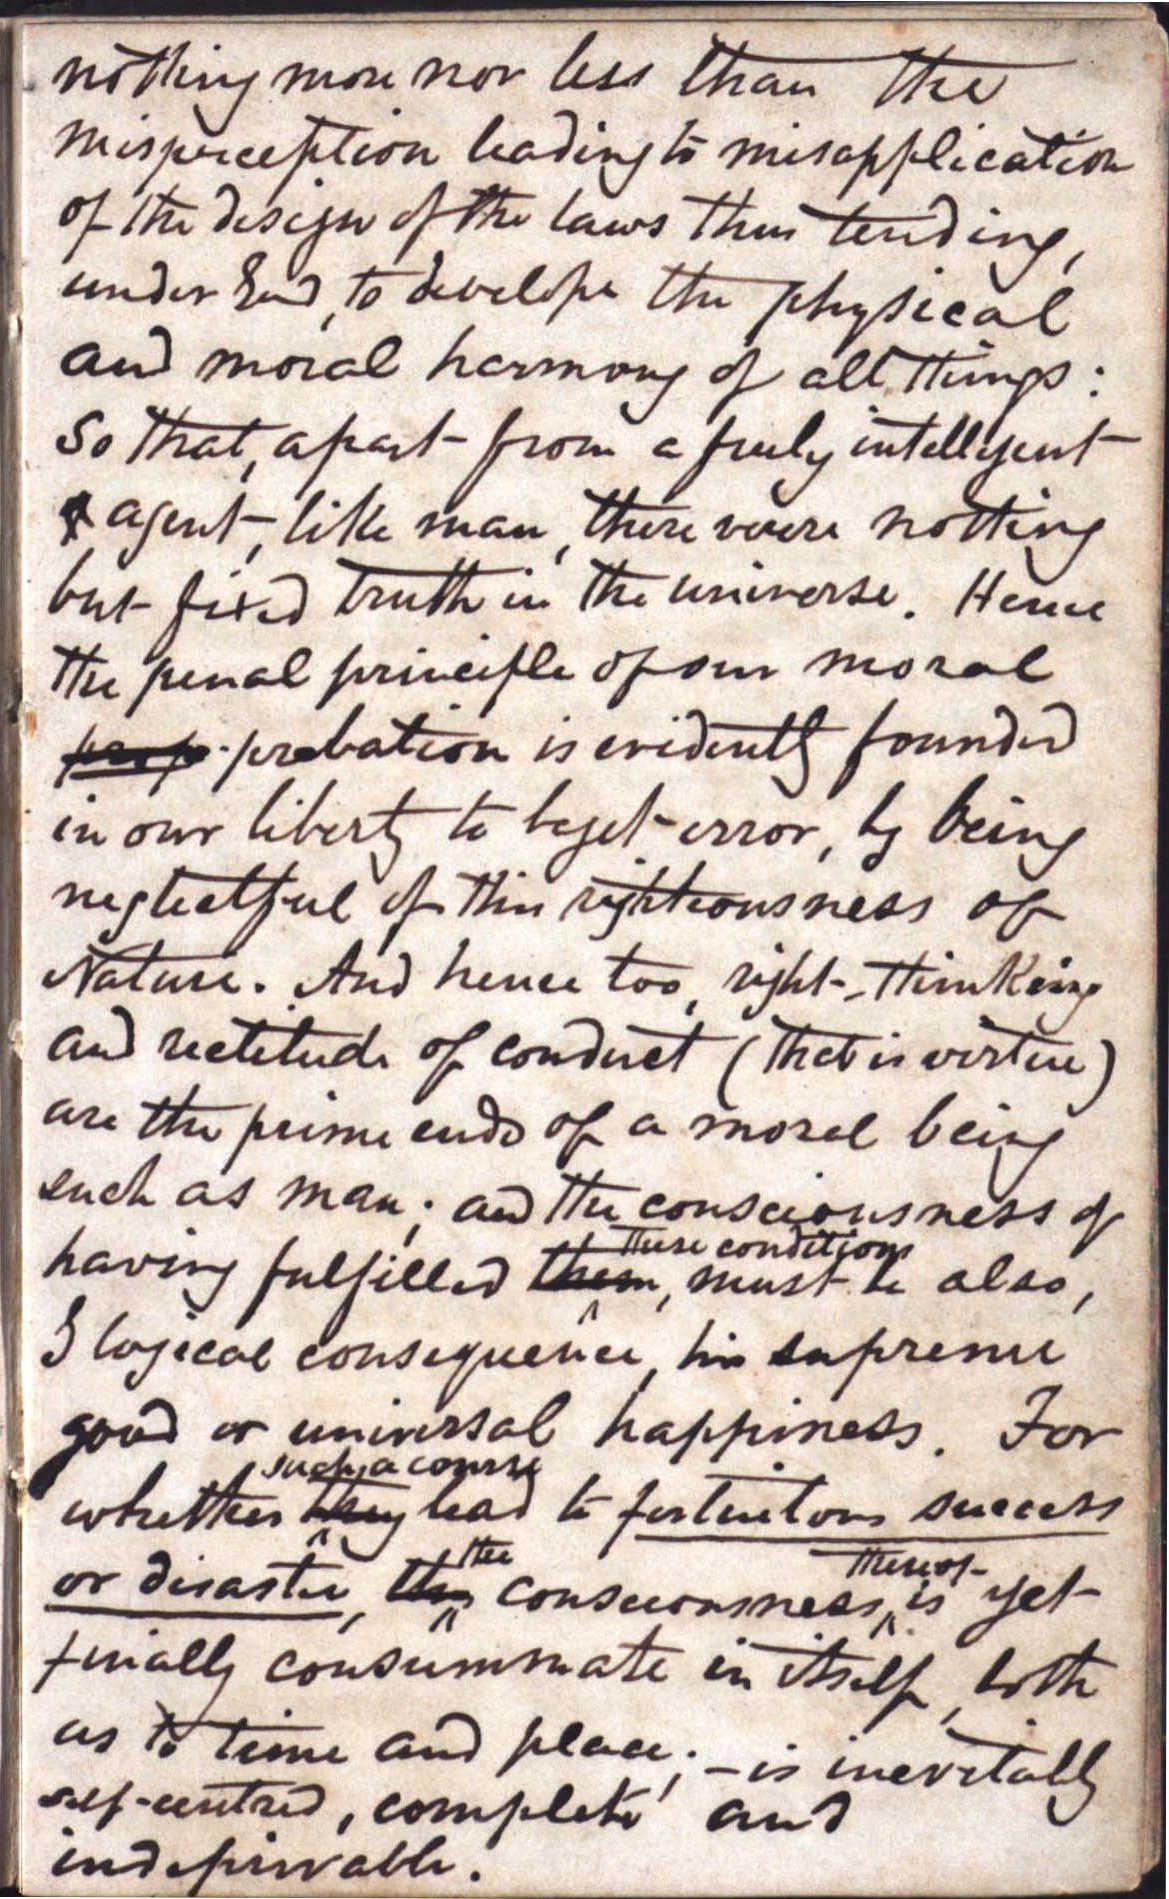 nothing more nor less than the
misperception leading to misapplication
of the design of the laws thus tending,
under God, to develope the physical
and moral harmony of all things:
So that, apart from a freely intelligent
agent, like man, there were nothing
but fixed truth in the universe. Hence
the penal principle of our moral
prop probation is evidently founded
in our liberty to beget error, by being
neglectful of this righteousness of
Nature. And hence too, right-thinking
and rectitude of conduct (that is virtue)
are the prime ends of a moral being
such as man; and the consciousness of
these conditions
having fulfilled them, must be also,
logical consequence, his supreme
good or universal happiness. For
such a course
whether they lead to fortuitous success
the thereof
or disaster, consciousness is yet
finally consummate in itself, both
as to time and place; – is inevitably
self-centred, complete and
indeprivable.